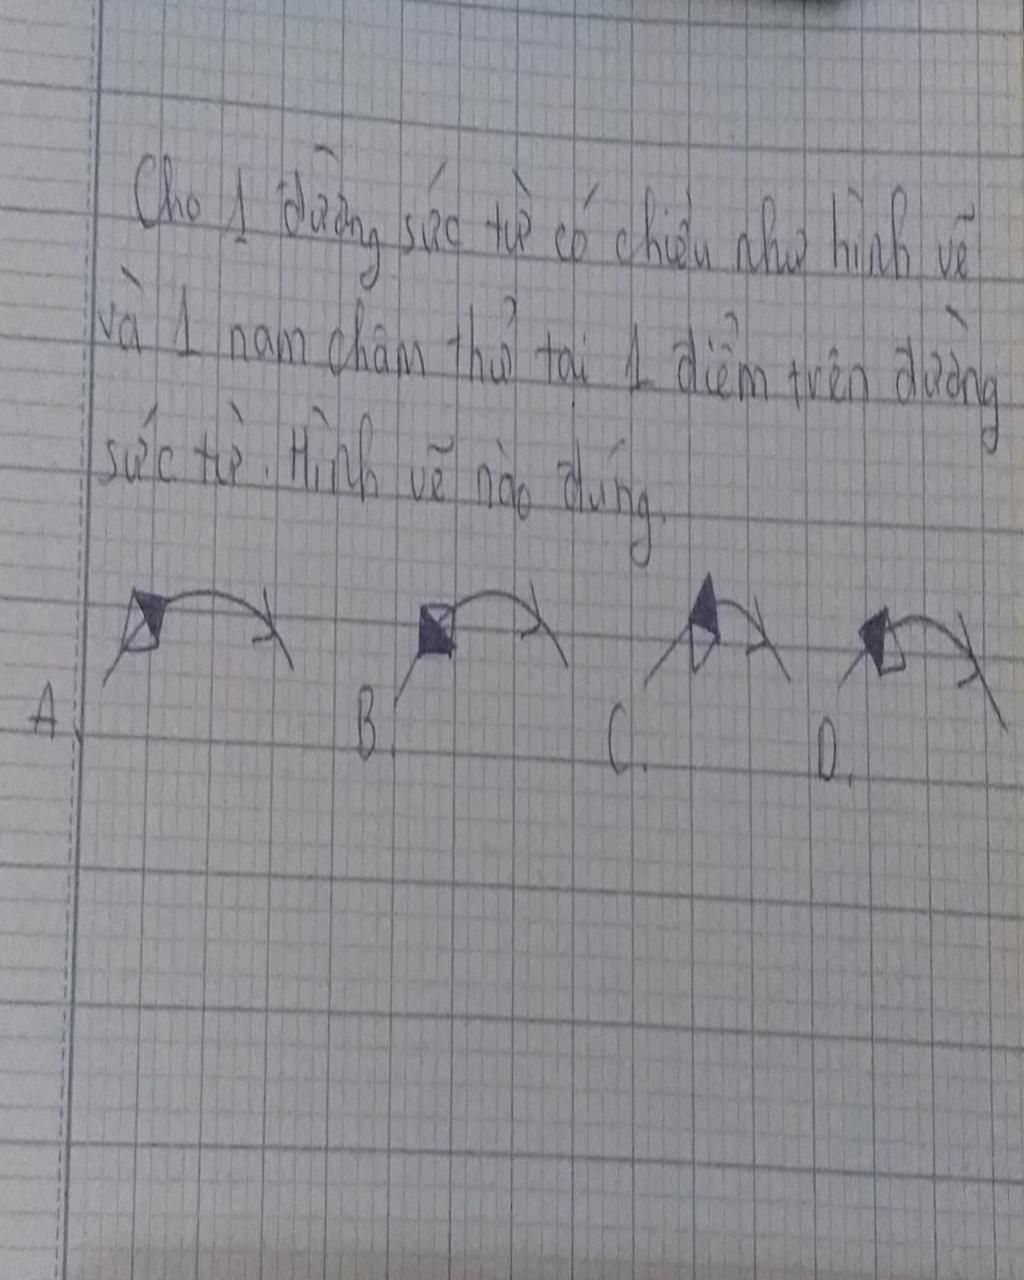 Cho 1 đường sức từ có chiều như hình vẽ
và 1 nam châm thử tại 1 điểm trên đường
sức từ. Hình vẽ nào đúng.
A. B. C. D.